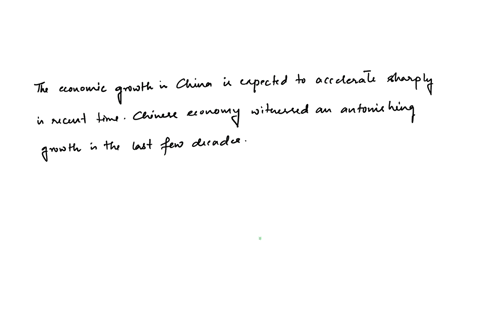 The economic growth in China is expected to accelerate sharply
in recent time. Chinese economy witnessed an astonishing
growth in the last few decades.